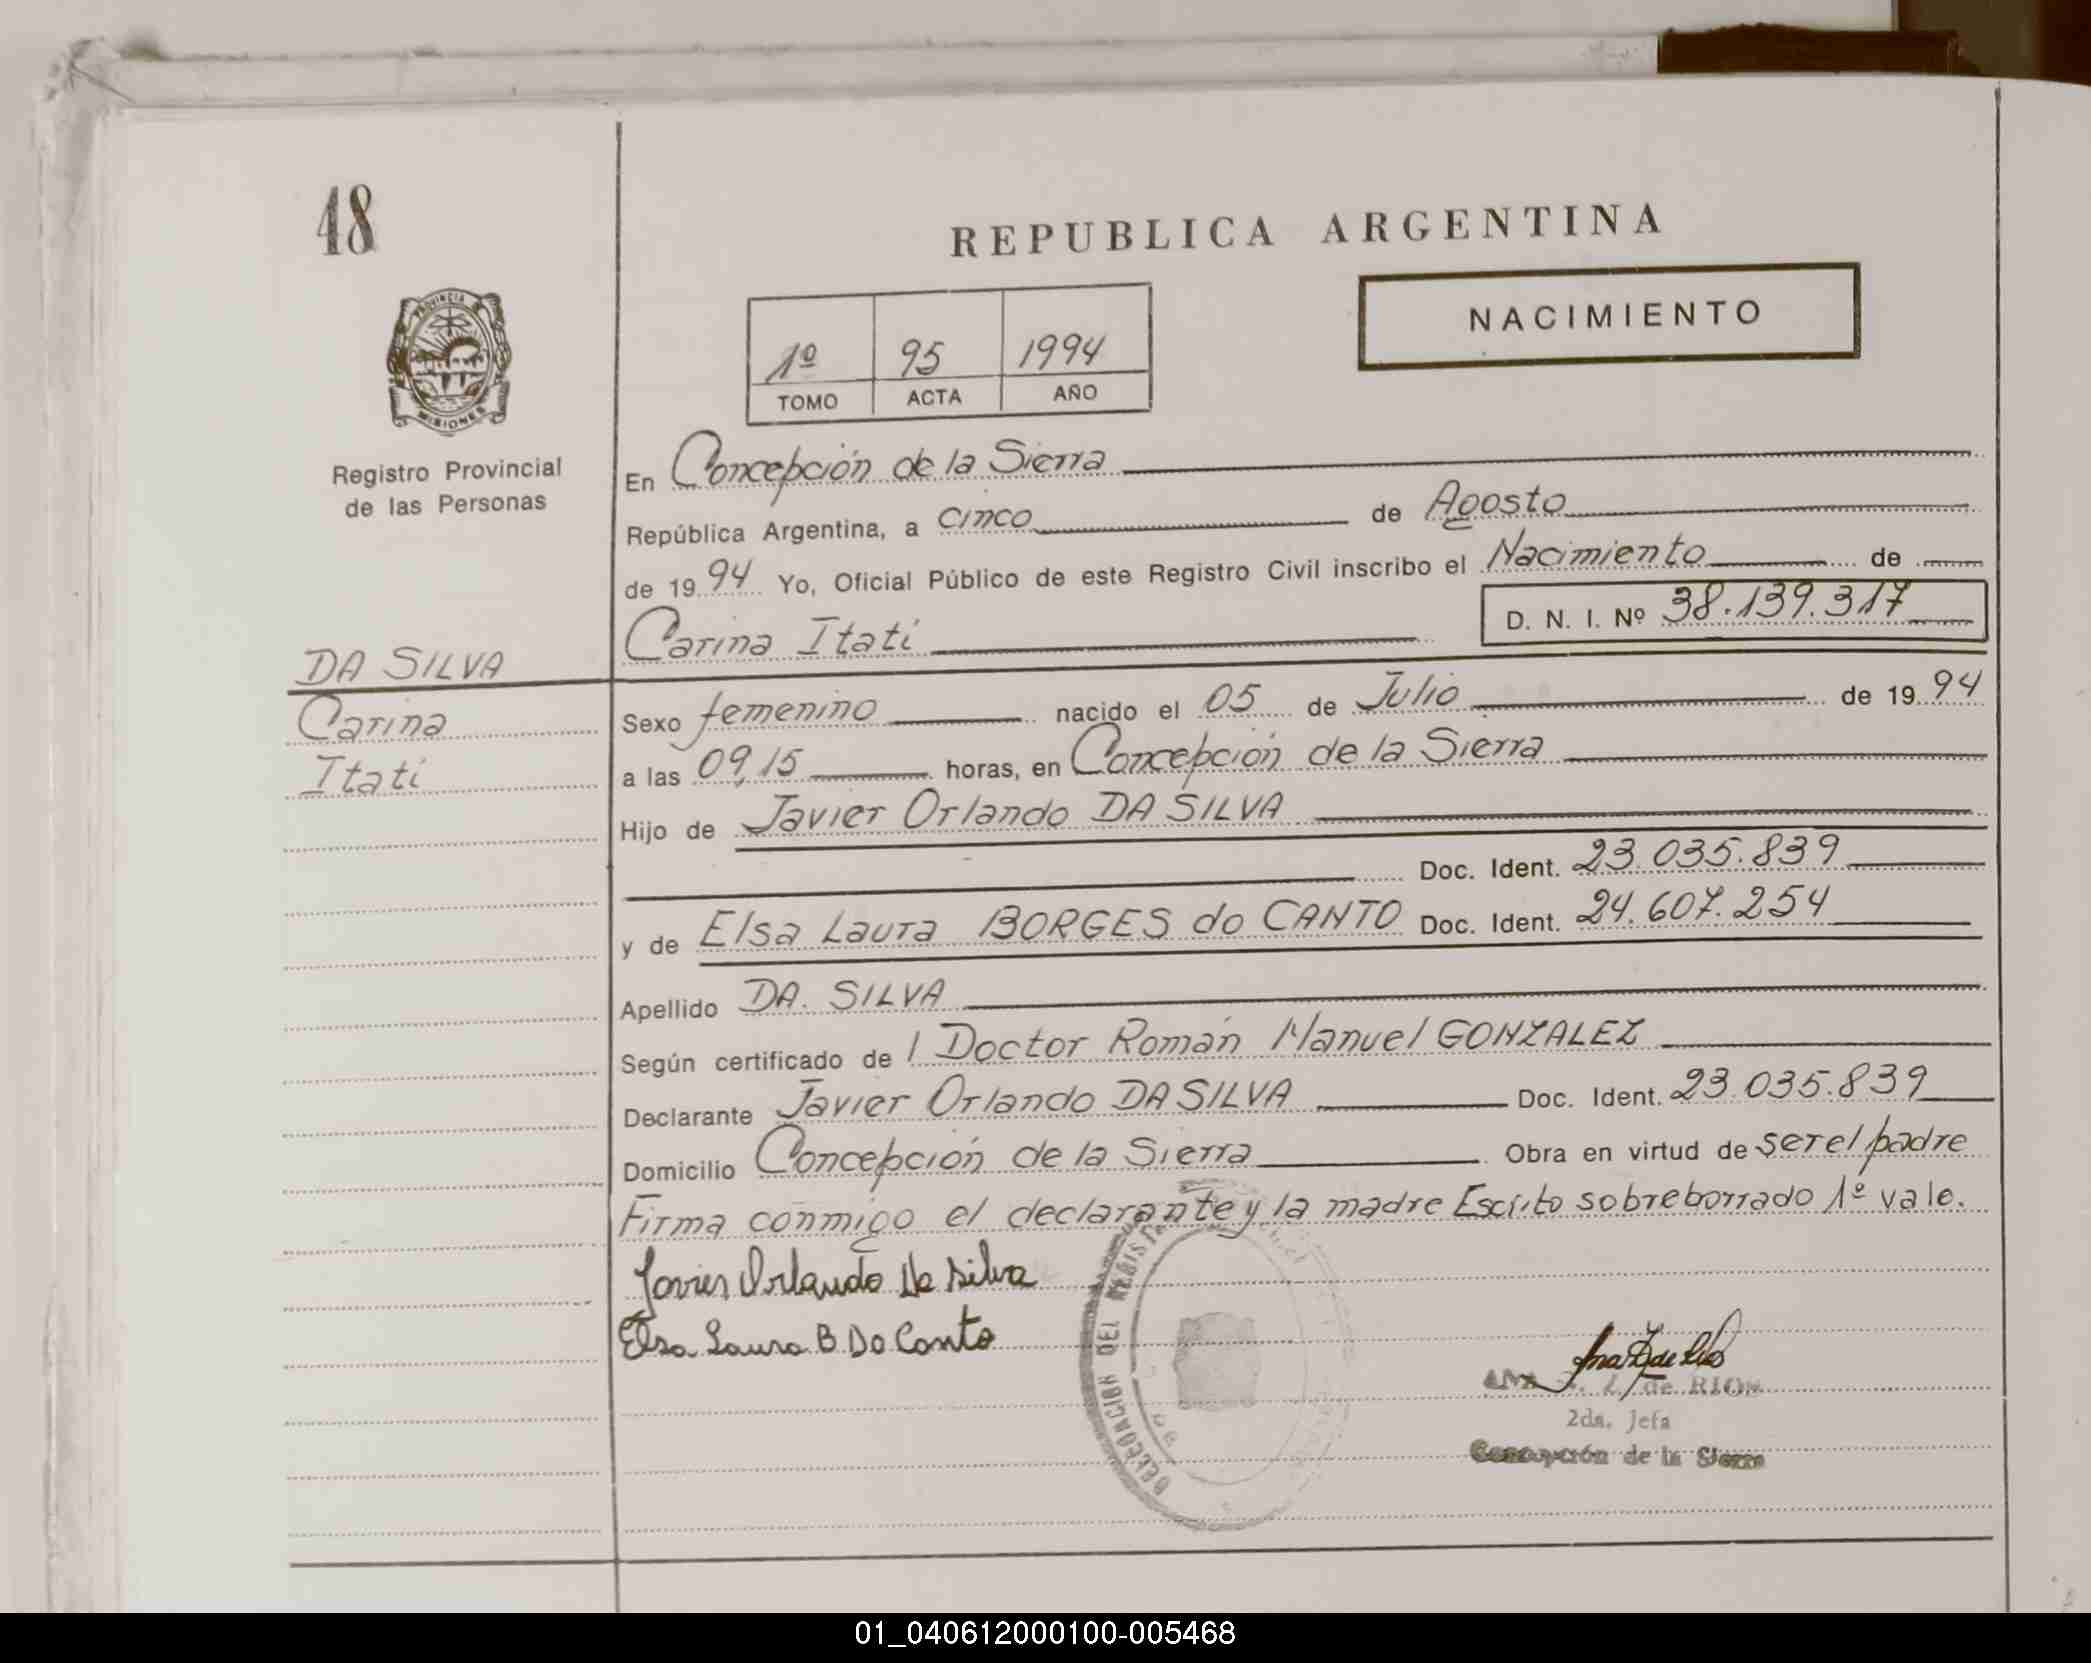 48
REPUBLICA ARGENTINA
NACIMIENTO
1º 95 1994
TOMO ACTA AÑO
PROVINCIA DE
MISIONES
Registro Provincial
de las Personas
En Concepción de la Sierra
República Argentina, a cinco de Agosto
de 1994 Yo, Oficial Público de este Registro Civil inscribo el Nacimiento de
Carina Itatí D. N. I. Nº 38.139.317
DA SILVA
Carina
Itatí
Sexo femenino nacido el 05 de Julio de 1994
a las 09,15 horas, en Concepción de la Sierra
Hijo de Javier Orlando DA SILVA
Doc. Ident. 23.035.839
y de Elsa Laura BORGES do CANTO Doc. Ident. 24.607.254
Apellido DA. SILVA
Según certificado de l Doctor Román Manuel GONZALEZ
Declarante Javier Orlando DA SILVA Doc. Ident. 23.035.839
Domicilio Concepción de la Sierra Obra en virtud de ser el padre
Firma conmigo el declarante y la madre Escrito sobreborrado 1º vale.
Javier Orlando Da Silva
Elsa Laura B Do Canto
DELEGACION DEL REGISTRO
de RIOS
2da. Jefa
Concepción de la Sierra
01_040612000100-005468